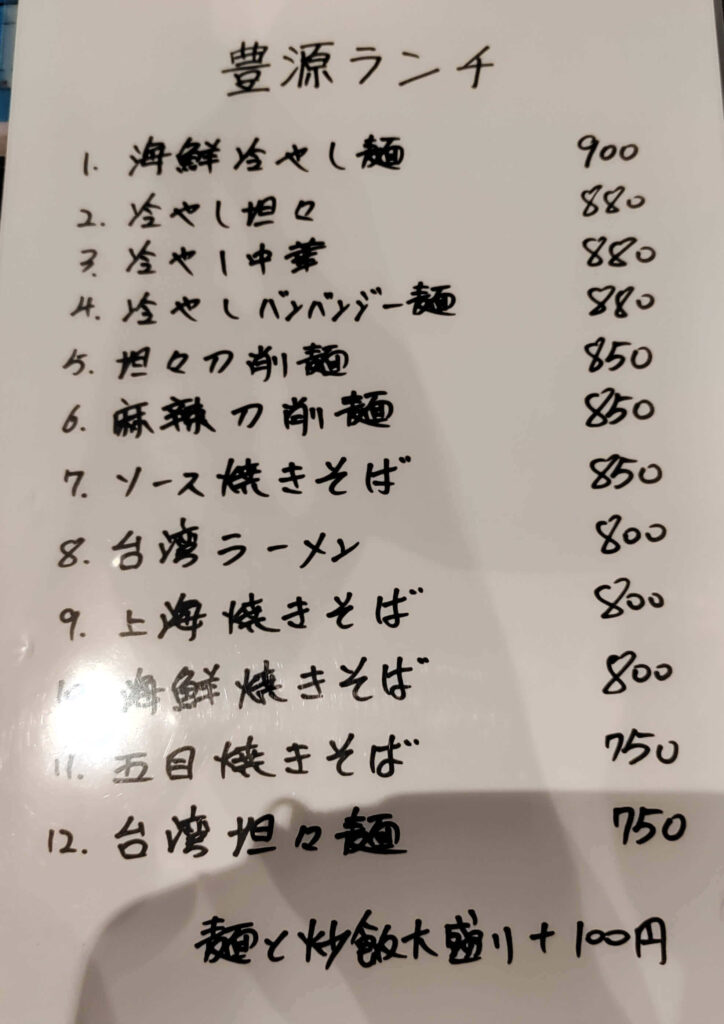 豊源ランチ
1. 海鮮冷やし麺 900
2. 冷やし坦々 880
3. 冷やし中華 880
4. 冷やしバンバンジー麺 880
5. 坦々刀削麺 850
6. 麻辣刀削麺 850
7. ソース焼きそば 850
8. 台湾ラーメン 800
9. 上海焼きそば 800
10. 海鮮焼きそば 800
11. 五目焼きそば 750
12. 台湾坦々麺 750
麺と炒飯大盛り+100円